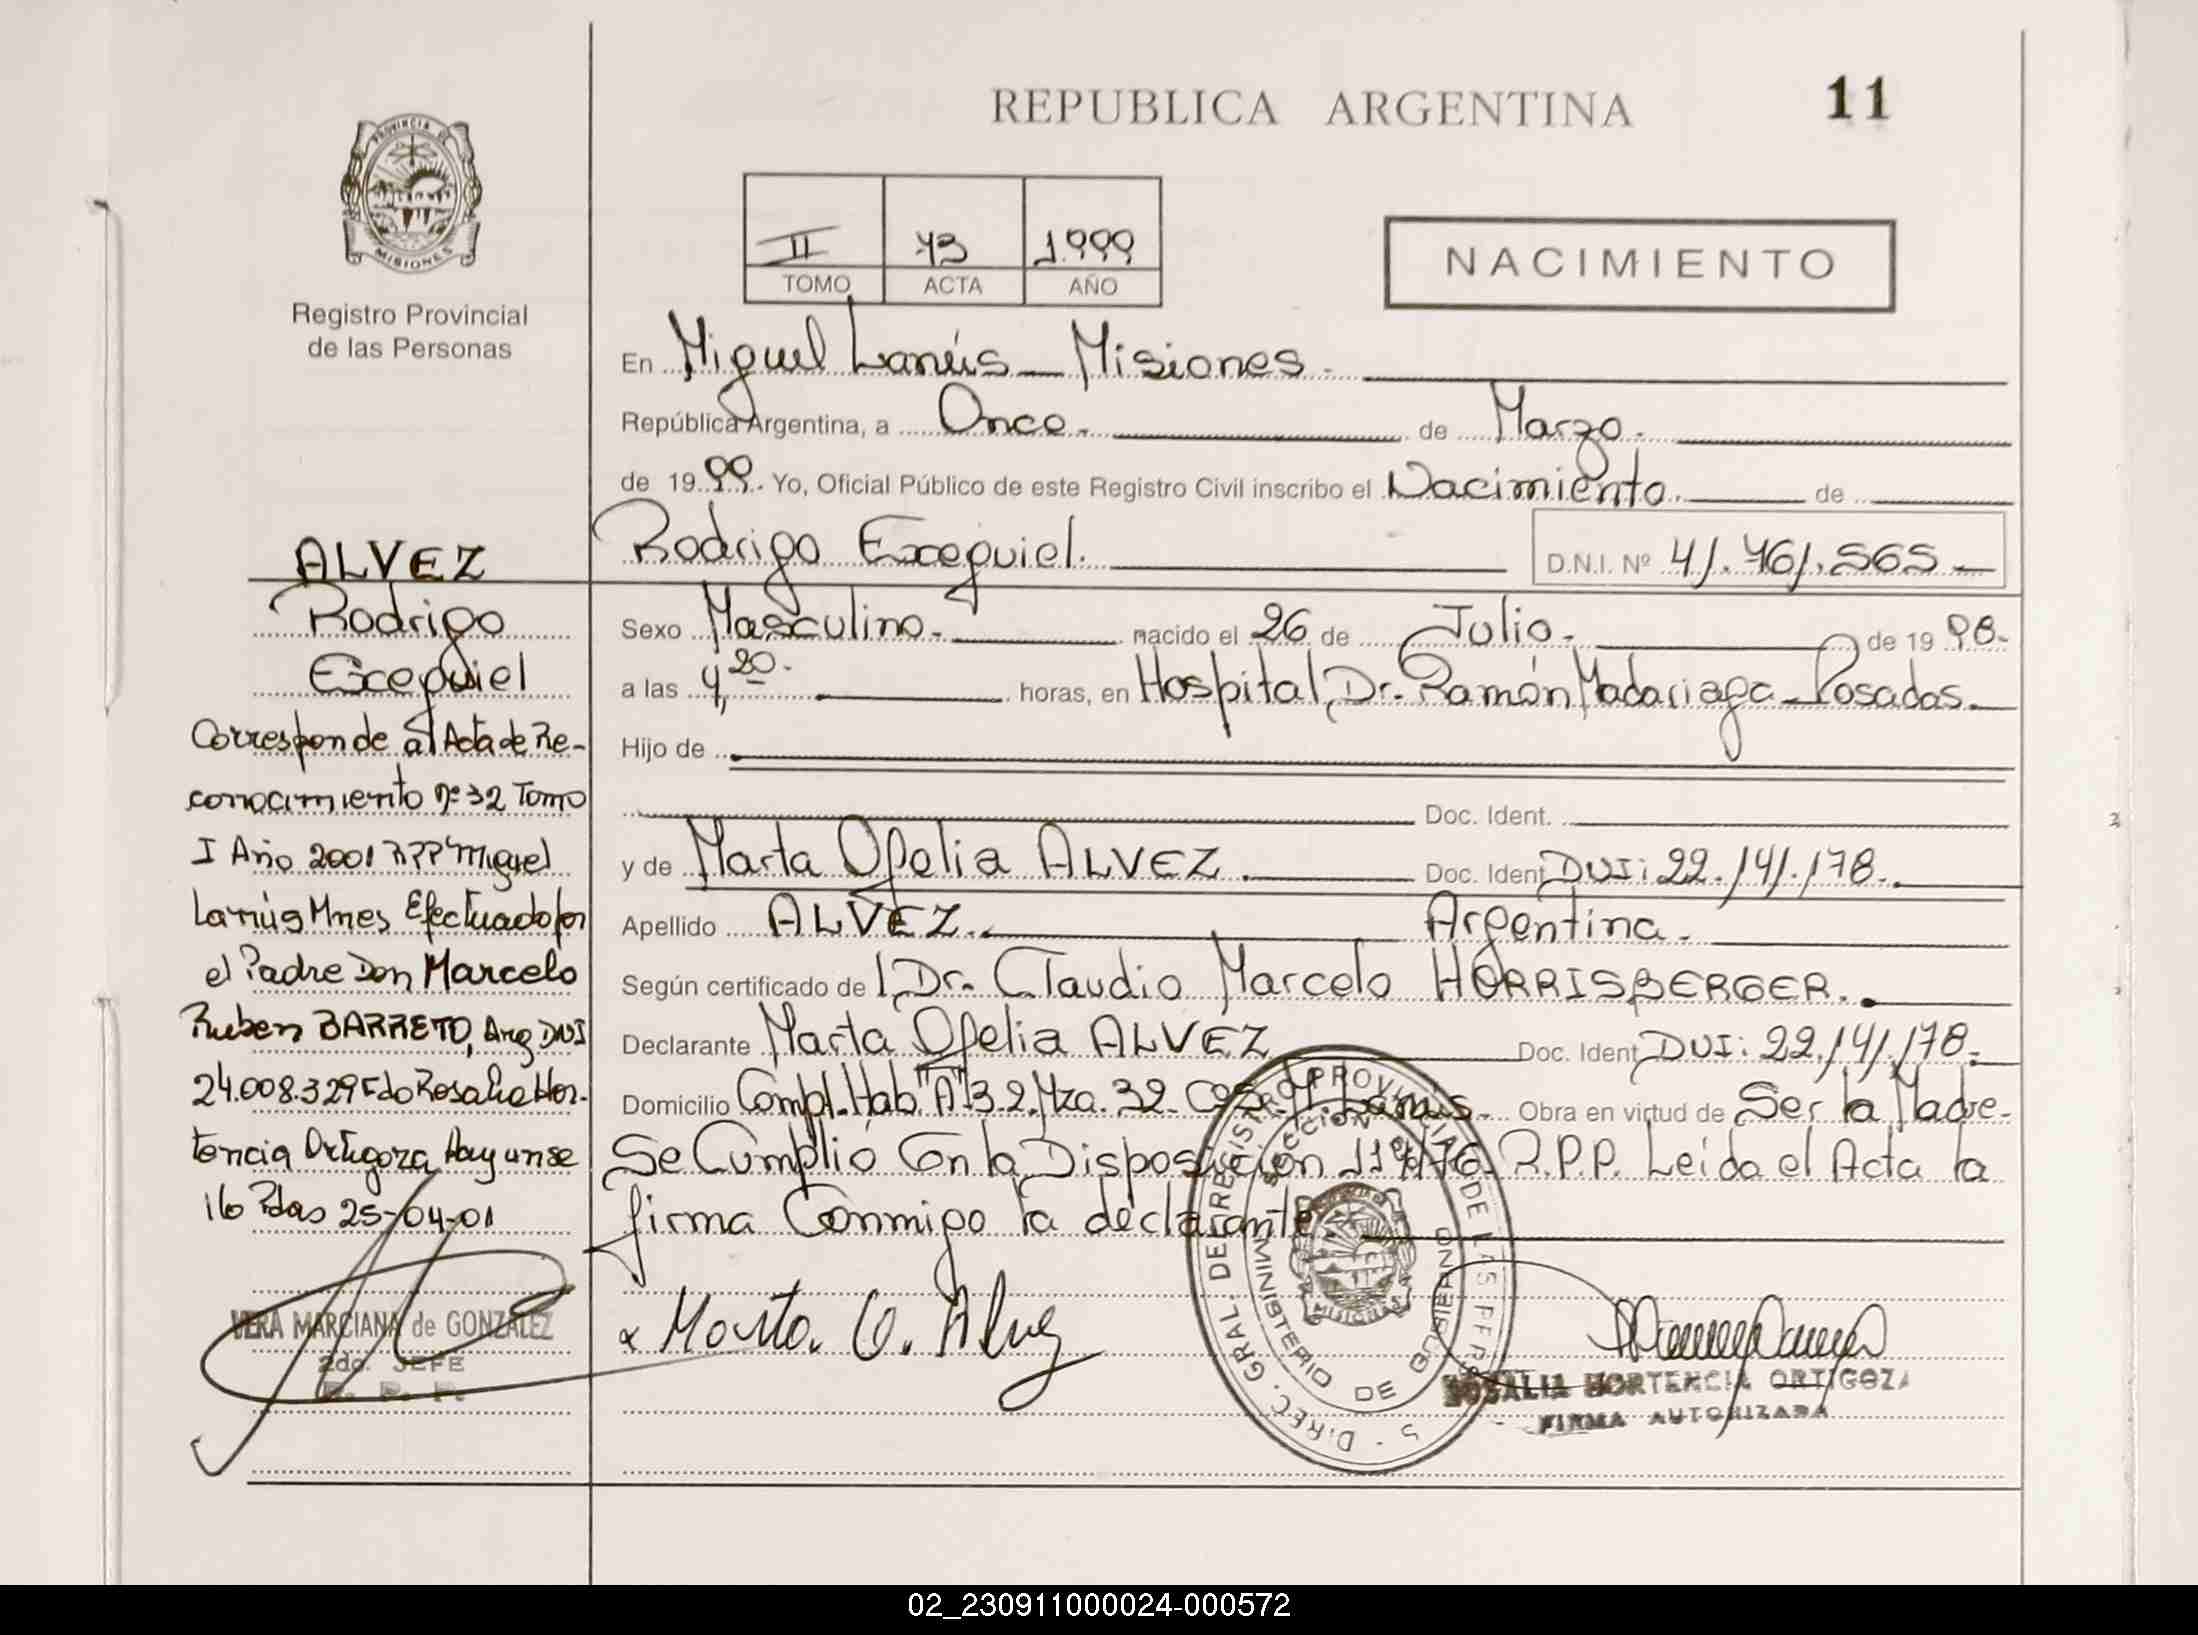 REPUBLICA ARGENTINA
11
PROVINCIA DE
MISIONES
Registro Provincial
de las Personas
II 73 1.999
TOMO ACTA AÑO
NACIMIENTO
En Miguel Lanús - Misiones.
República Argentina, a Once. de Marzo.
de 1999. Yo, Oficial Público de este Registro Civil inscribo el Nacimiento. de
Rodrigo Exequiel. D.N.I. Nº 41.761.565.
Sexo Masculino. nacido el 26 de Julio. de 1998.
a las 4,20. horas, en Hospital Dr. Ramón Madariaga - Posadas.
Hijo de
Doc. Ident.
y de Marta Ofelia ALVEZ Doc. Ident DNI: 22.141.178.
Apellido ALVEZ. Argentina.
Según certificado del Dr. Claudio Marcelo HORRISBERGER.
Declarante Marta Ofelia ALVEZ Doc. Ident DNI: 22.141.178.
Domicilio Compl. Hab. "A" 3.2. Mza. 32. Cas. M. Lanús. Obra en virtud de Ser la Madre.
Se Cumplió Con la Disposición 114/76. R.P.P. Leída el Acta la
firma Conmigo la declarante
Marta O. Alvez
DIREC. GRAL. DEL REGISTRO PROVINCIAL DE LAS PERS
SECCION
MINISTERIO DE GOBIERNO
MISIONES
ROSALIA HORTENCIA ORTIGOZA
FIRMA AUTORIZADA
ALVEZ
Rodrigo
Exequiel
Corresponde al Acta de Re-
conocimiento Nº 32 Tomo
I Año 2001 RPP Miguel
Lanús Mnes Efectuado por
el Padre Don Marcelo
Ruben BARRETO, Arg DNI
24.008.329 Fdo Rosalia Hor-
tencia Ortigoza Hay un se
llo Pdas 25-04-01
VERA MARCIANA de GONZALEZ
2do. JEFE
R. P. P.
02_230911000024-000572